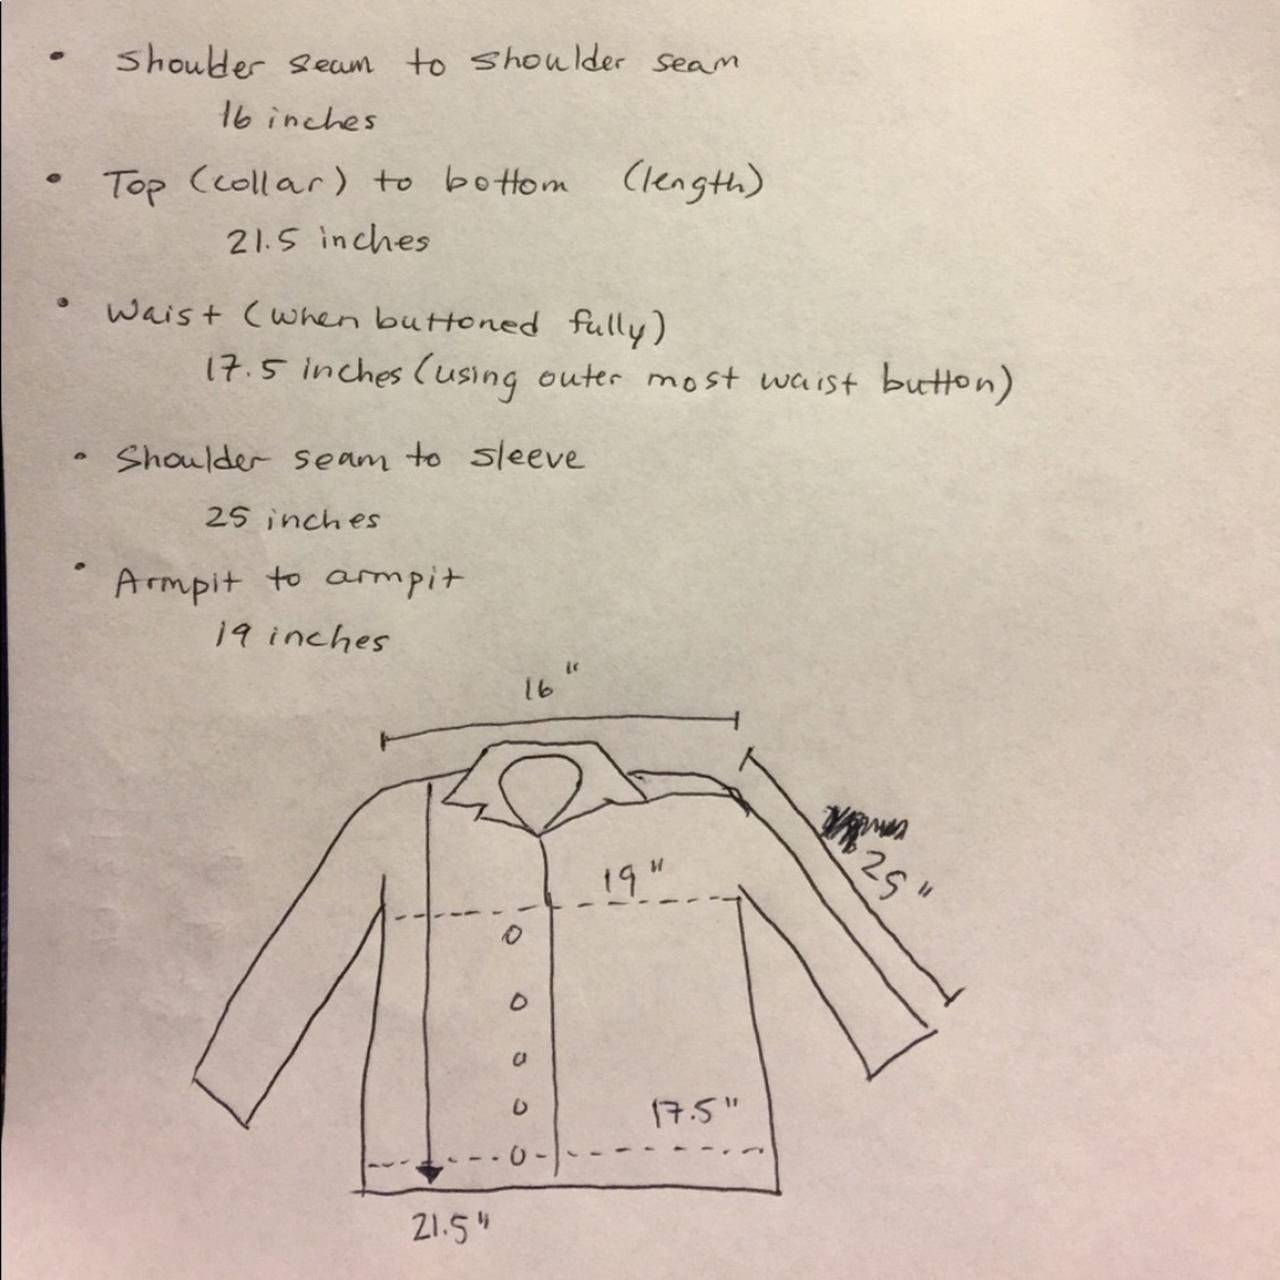 • Shoulder seam to shoulder seam
16 inches
• Top (collar) to bottom (length)
21.5 inches
• Waist (when buttoned fully)
17.5 inches (using outer most waist button)
• Shoulder seam to sleeve
25 inches
• Armpit to armpit
19 inches
16"
25"
19"
17.5"
21.5"